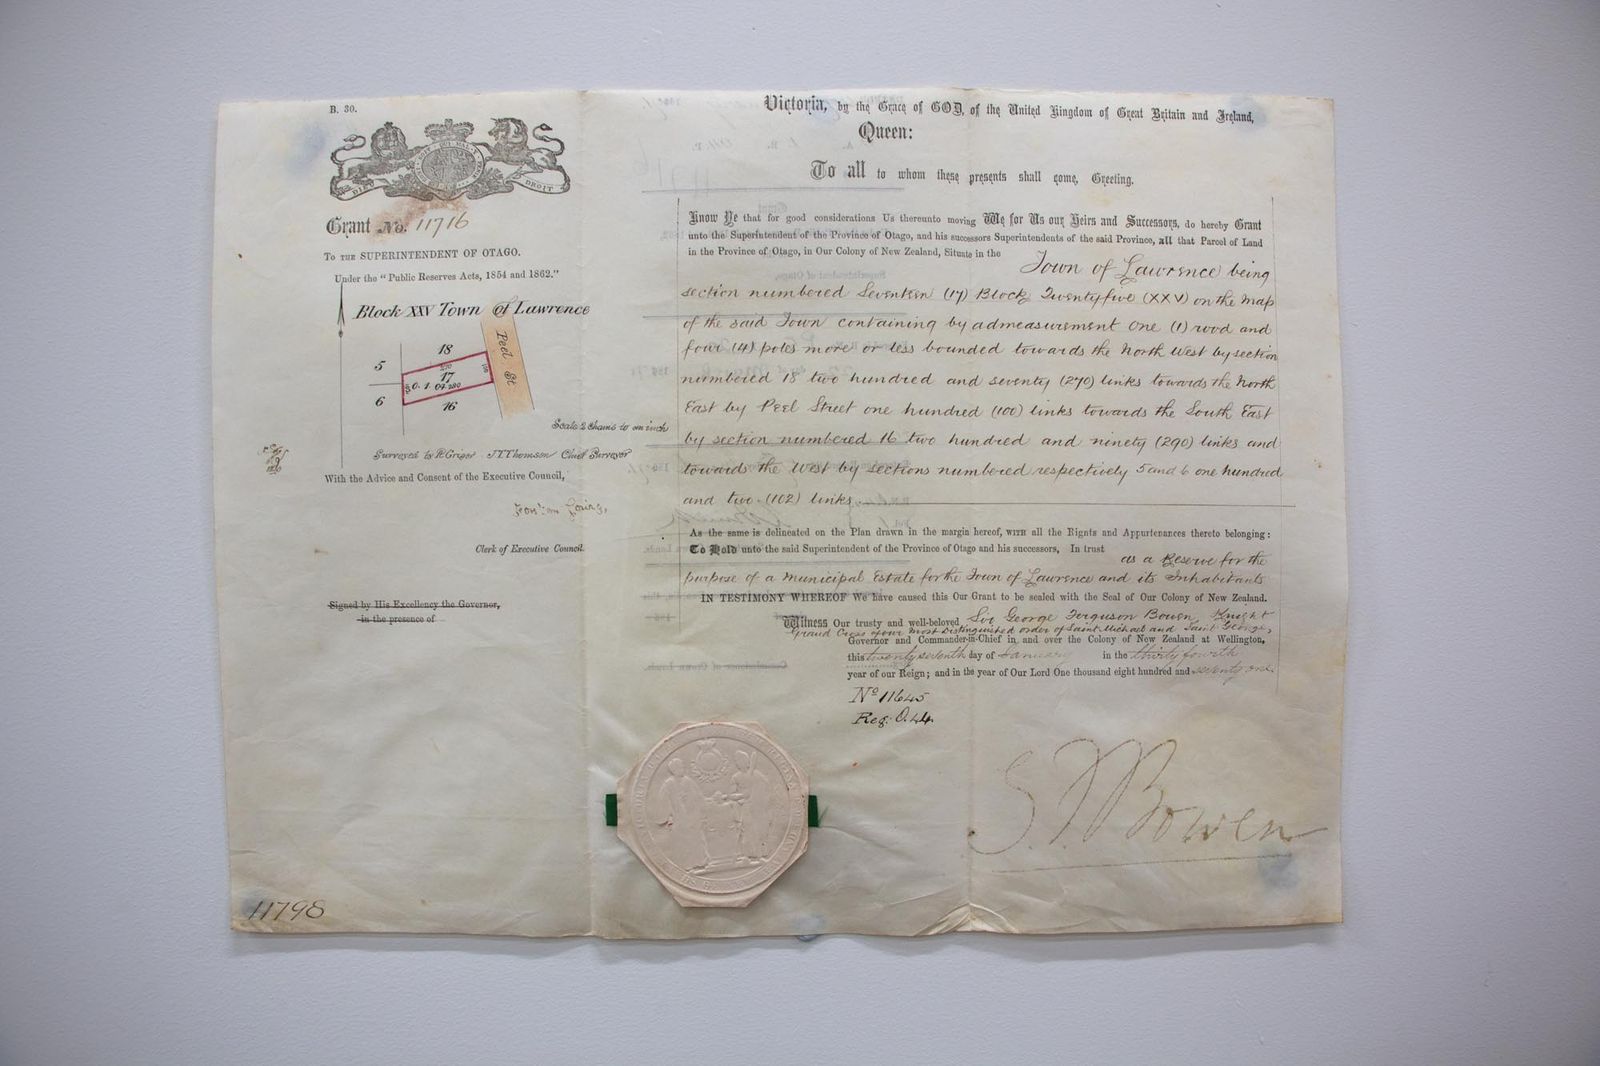 B. 30.
DIEU ET MON DROIT
Grant No. 11716
To the SUPERINTENDENT OF OTAGO.
Under the "Public Reserves Acts, 1854 and 1862."
Block XXV Town of Lawrence
Peel St
18
5
270
100
17
0. 1. 04
290
6
16
Scale 2 Chains to an inch
Surveyed by JT Thomson Chief Surveyor
With the Advice and Consent of the Executive Council,
Clerk of Executive Council.
Signed by His Excellency the Governor,
in the presence of
11798
Victoria, by the Grace of GOD, of the United Kingdom of Great Britain and Ireland,
Queen:
To all to whom these presents shall come, Greeting.
Know Ye that for good considerations Us thereunto moving We for Us our Heirs and Successors, do hereby Grant
unto the Superintendent of the Province of Otago, and his successors Superintendents of the said Province, all that Parcel of Land
in the Province of Otago, in Our Colony of New Zealand, Situate in the
Town of Lawrence being
section numbered Seventeen (17) Block Twentyfive (XXV) on the map
of the said Town containing by admeasurement one (1) rood and
four (4) poles more or less bounded towards the North West by section
numbered 18 two hundred and seventy (270) links towards the North
East by Peel Street one hundred (100) links towards the South East
by section numbered 16 two hundred and ninety (290) links and
towards the West by sections numbered respectively 5 and 6 one hundred
and two (102) links
As the same is delineated on the Plan drawn in the margin hereof, WITH all the Rights and Appurtenances thereto belonging:
To Hold unto the said Superintendent of the Province of Otago and his successors, In trust
as a Reserve for the
purpose of a Municipal Estate for the Town of Lawrence and its Inhabitants
IN TESTIMONY WHEREOF We have caused this Our Grant to be sealed with the Seal of Our Colony of New Zealand.
Witness Our trusty and well-beloved Sir George Ferguson Bowen, Knight
Grand Cross of our most Distinguished order of Saint Michael and Saint George,
Governor and Commander-in-Chief in and over the Colony of New Zealand at Wellington,
this twenty seventh day of January in the thirty fourth
year of our Reign; and in the year of Our Lord One thousand eight hundred and seventy one.
No 11645
Reg. O. 44.
G. F. Bowen